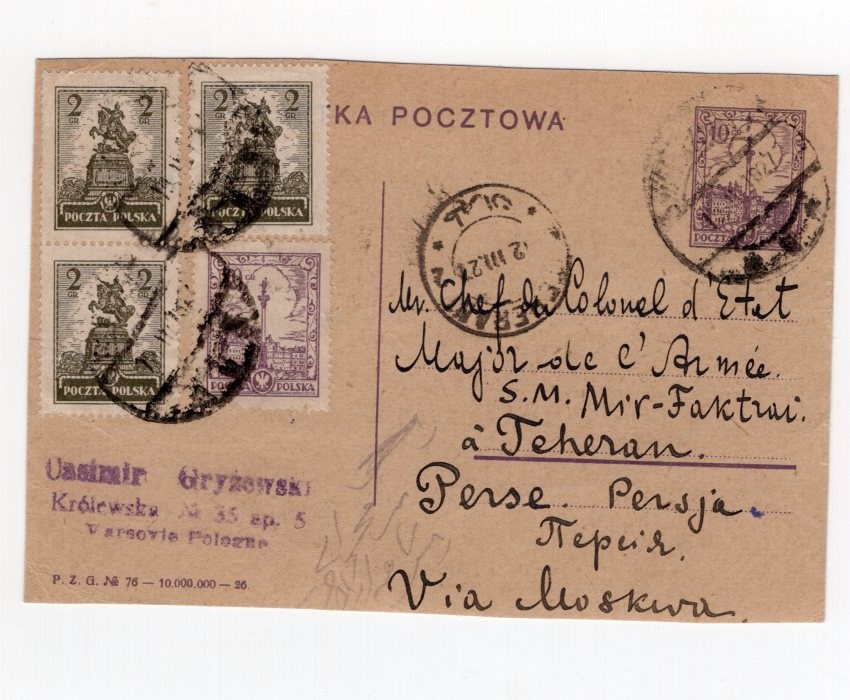 2 GR 2
POCZTA POLSKA
2 GR 2
POCZTA POLSKA
TKA POCZTOWA
10
2 GR 2
POCZTA POLSKA
POCZTA POLSKA
TEHERAN
2 III.27
Mr. Chef du Colonel d'Etat
Major de l'Armée.
S.M. Mir-Faktrai.
à Teheran.
Perse. Persja.
Персія.
Via Moskwa.
Casimir Gryżewski
Królewska № 35 ap. 5
Varsovie Pologne
P. Z. G. № 76 — 10.000.000 — 26.